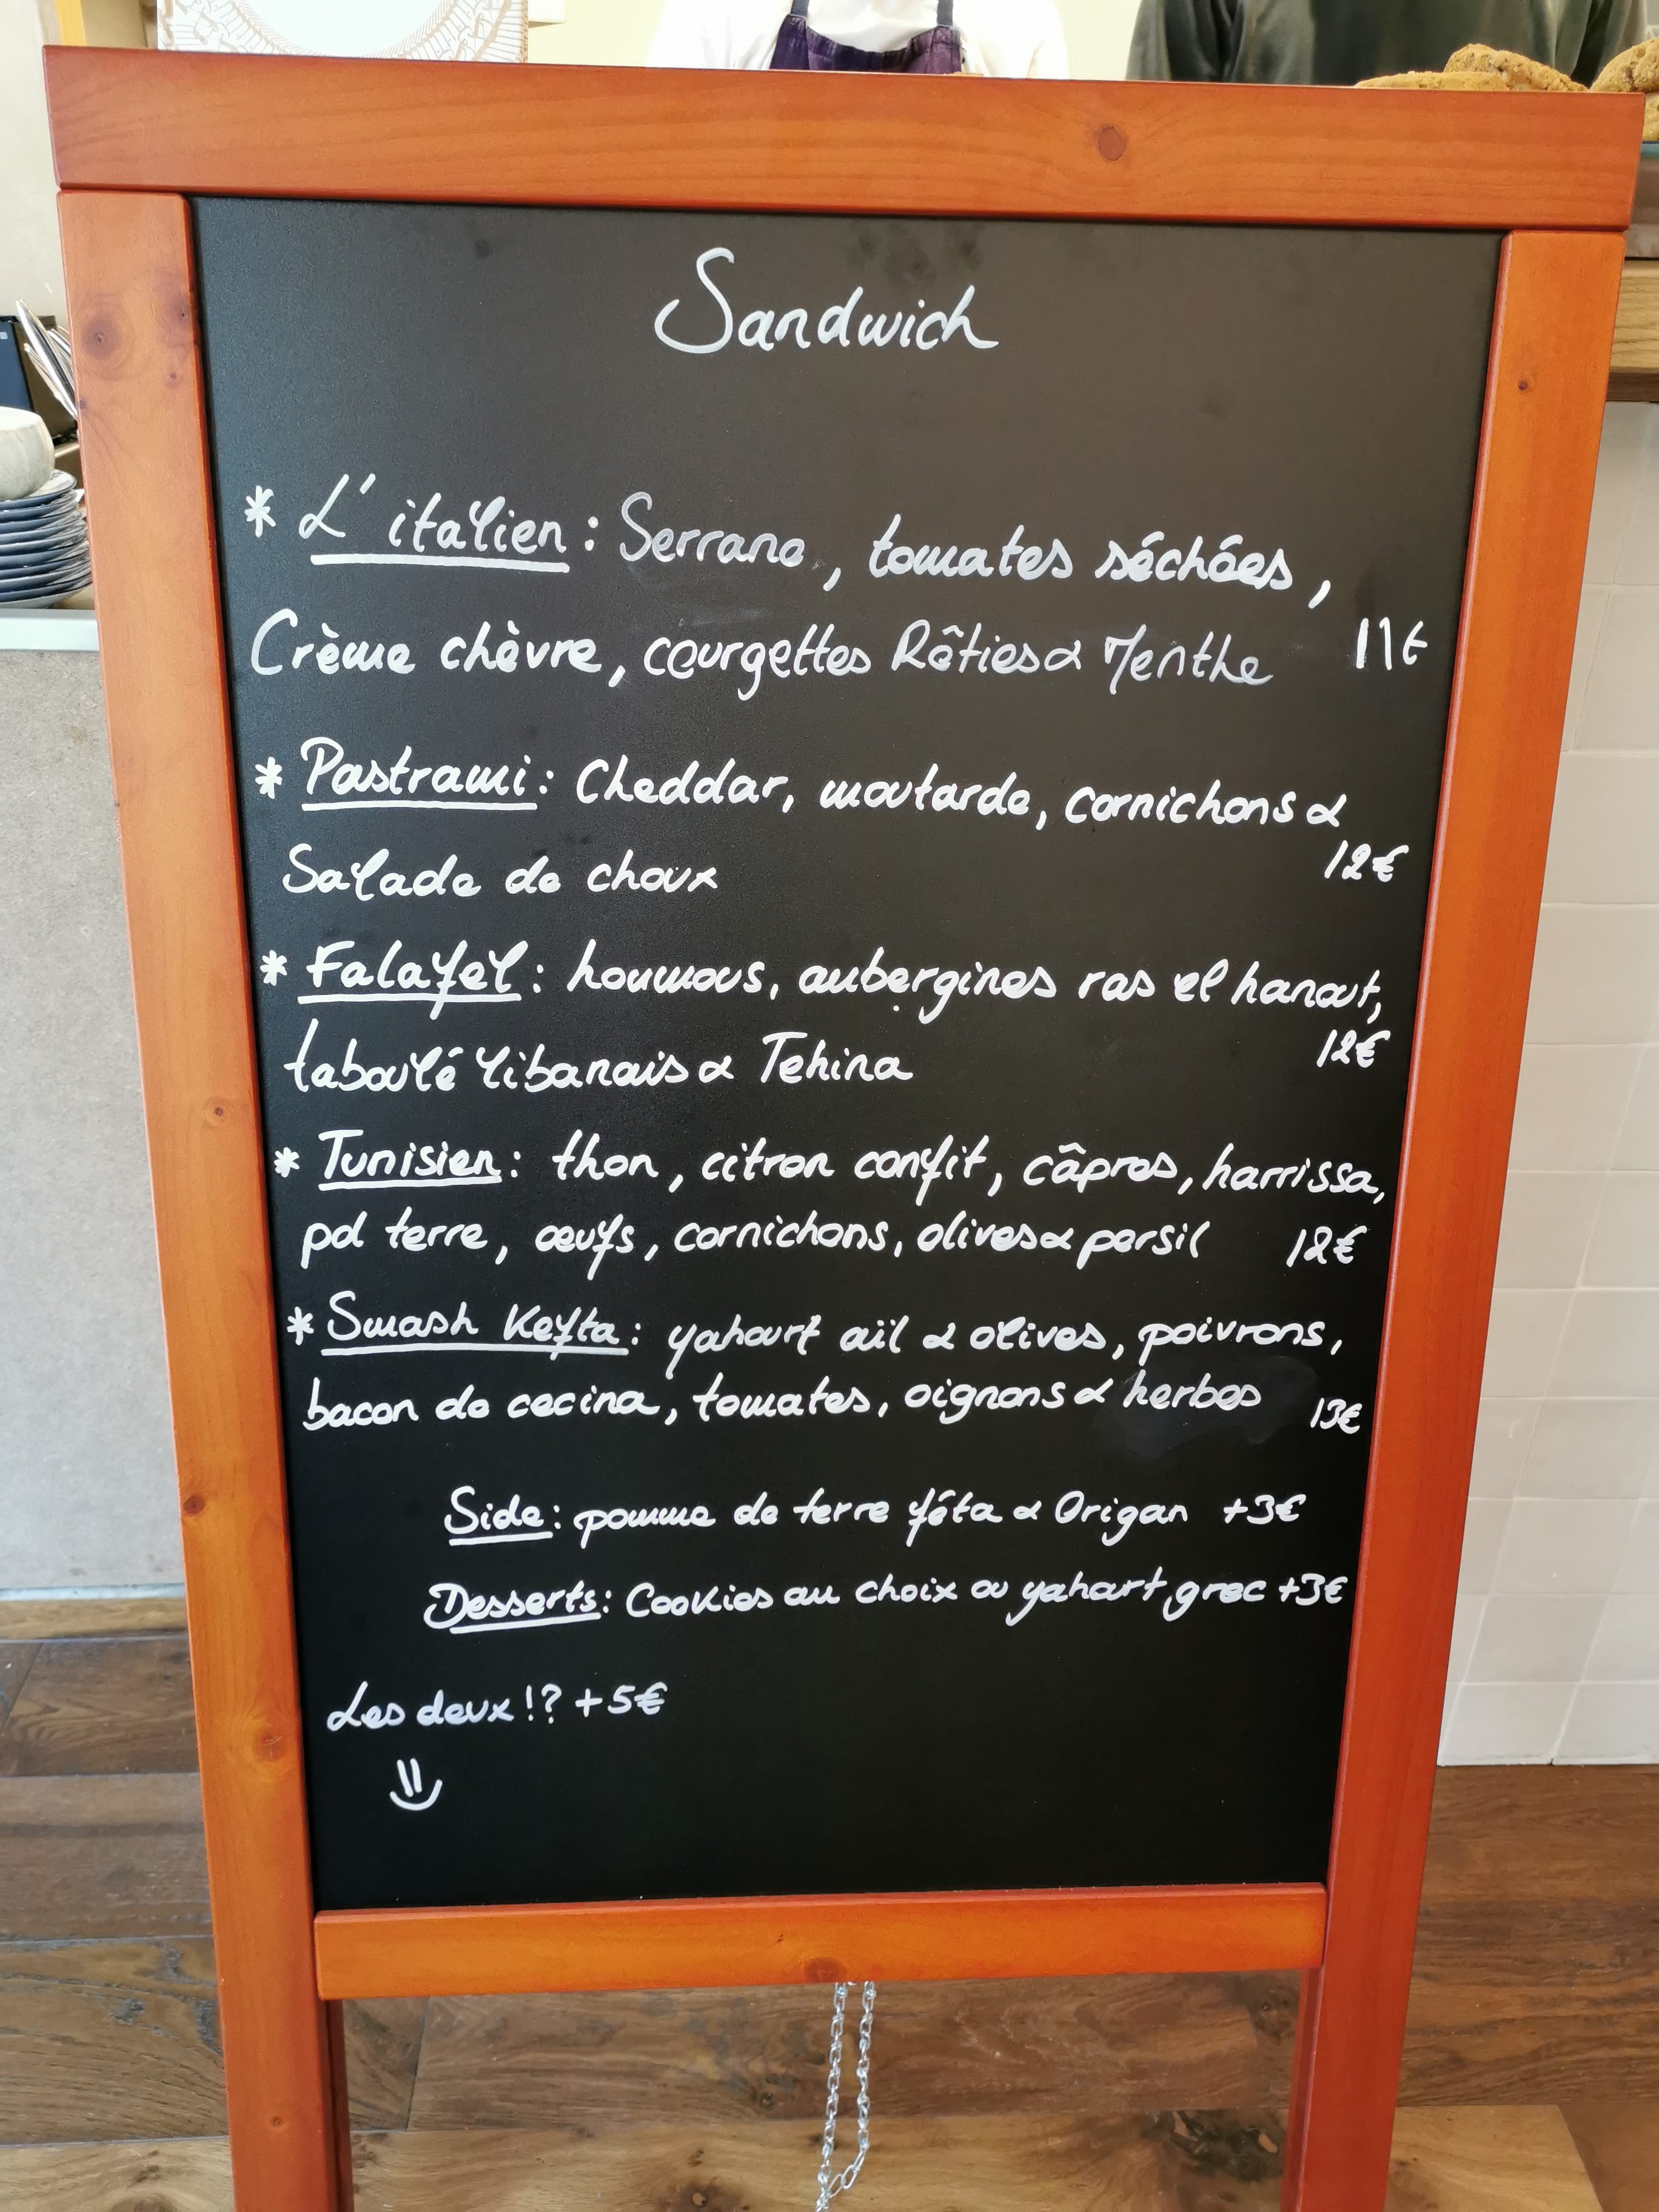 Sandwich
* L'italien : Serrano, tomates séchées,
Crème chèvre, courgettes Rôties & Menthe 11€
* Pastrami : Cheddar, moutarde, cornichons &
Salade de choux 12€
* Falafel : houmous, aubergines ras el hanout,
taboulé libanais & Tehina 12€
* Tunisien : thon, citron confit, câpres, harrissa,
pd terre, œufs, cornichons, olives & persil 12€
* Smash Kefta : yahourt ail & olives, poivrons,
bacon de cecina, tomates, oignons & herbes 13€
Side : pomme de terre féta & Origan +3€
Desserts : Cookies au choix ou yahourt grec +3€
Les deux !? +5€